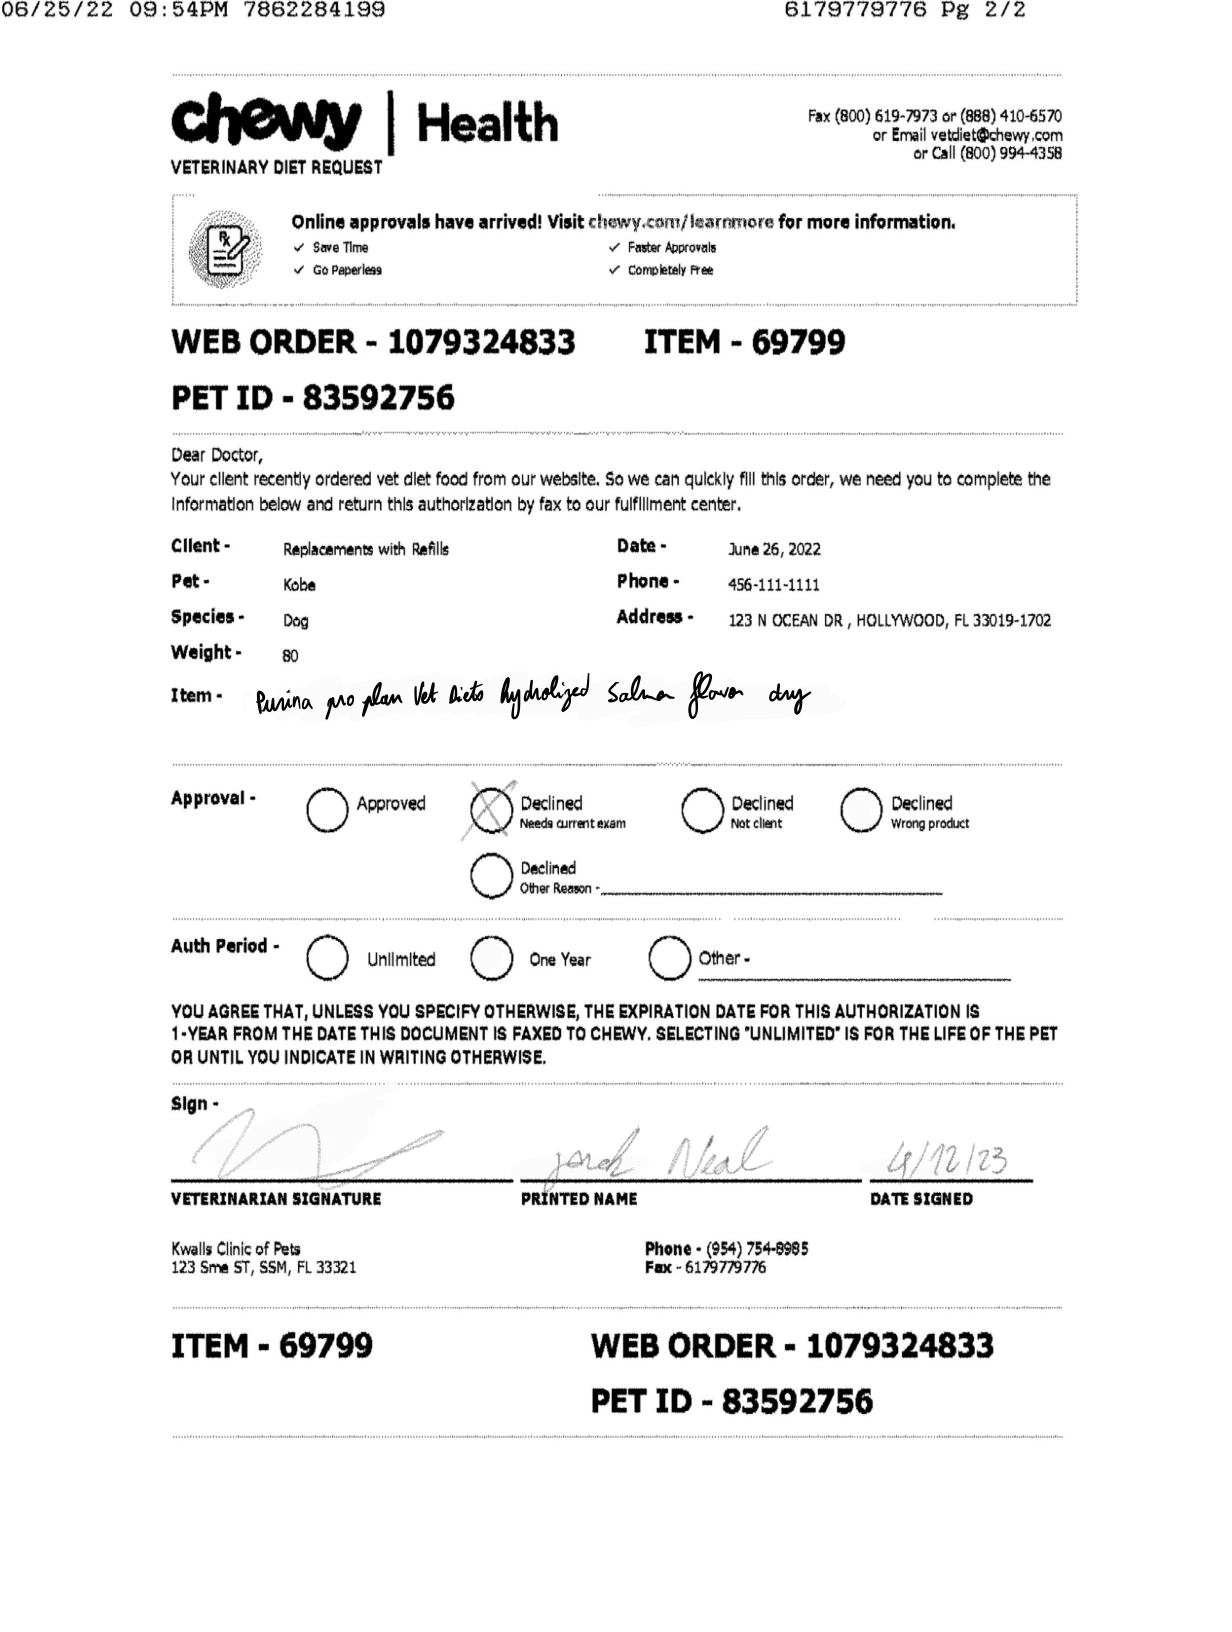 06/25/22 09:54PM 7862284199 6179779776 Pg 2/2
chewy | Health
Fax (800) 619-7973 or (888) 410-6570
or Email vetdiet@chewy.com
or Call (800) 994-4358
VETERINARY DIET REQUEST
Online approvals have arrived! Visit chewy.com/learnmore for more information.
✓ Save Time ✓ Faster Approvals
✓ Go Paperless ✓ Completely Free
Rx
WEB ORDER - 1079324833 ITEM - 69799
PET ID - 83592756
Dear Doctor,
Your client recently ordered vet diet food from our website. So we can quickly fill this order, we need you to complete the
information below and return this authorization by fax to our fulfillment center.
Client - Replacements with Refills Date - June 26, 2022
Pet - Kobe Phone - 456-111-1111
Species - Dog Address - 123 N OCEAN DR , HOLLYWOOD, FL 33019-1702
Weight - 80
Item - Purina pro plan Vet Diets hydrolized Salmon flavor dry
Approval - Approved Declined Declined Declined
Needs current exam Not client Wrong product
Declined
Other Reason -
Auth Period - Unlimited One Year Other -
YOU AGREE THAT, UNLESS YOU SPECIFY OTHERWISE, THE EXPIRATION DATE FOR THIS AUTHORIZATION IS
1-YEAR FROM THE DATE THIS DOCUMENT IS FAXED TO CHEWY. SELECTING "UNLIMITED" IS FOR THE LIFE OF THE PET
OR UNTIL YOU INDICATE IN WRITING OTHERWISE.
Sign -
Neal 4/12/23
VETERINARIAN SIGNATURE PRINTED NAME DATE SIGNED
Kwalls Clinic of Pets Phone - (954) 754-8985
123 Sme ST, SSM, FL 33321 Fax - 6179779776
ITEM - 69799 WEB ORDER - 1079324833
PET ID - 83592756